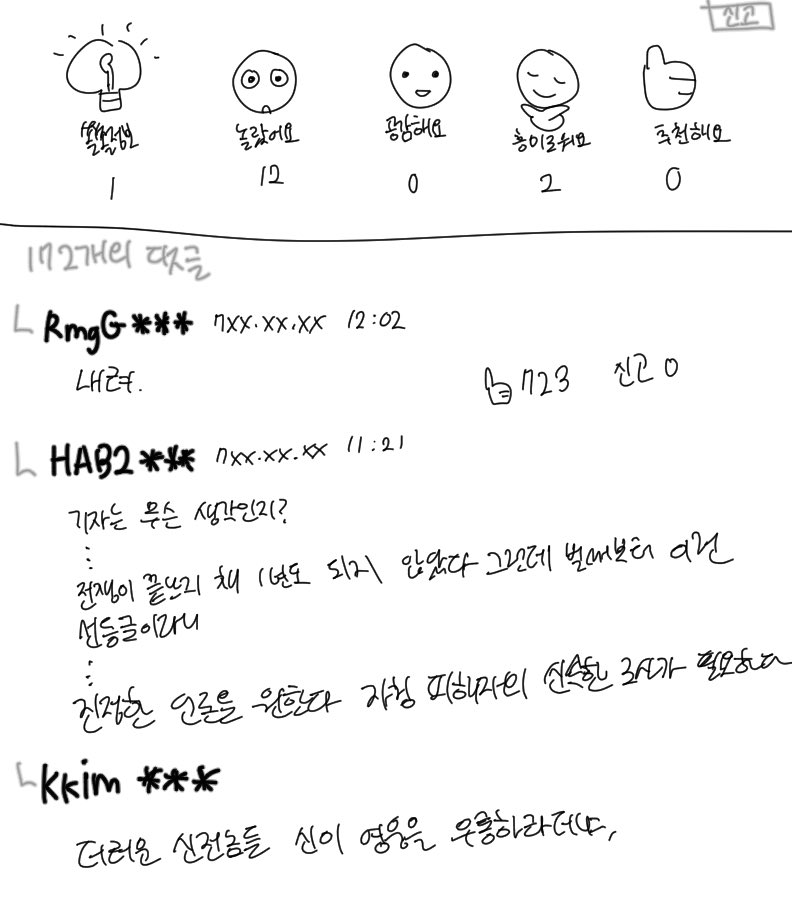 신고
쏠쏠정보 놀랐어요 공감해요 흥미로워요 추천해요
1 12 0 2 0
172개의 댓글
RmgG*** 7XX.XX.XX 12:02
내려. 723 신고 0
HAB2*** 7XX.XX.XX 11:21
기자는 무슨 생각인지?
전쟁이 끝난지 채 1년도 되지 않았다 그런데 벌써부터 이런
선동글이라니
진정한 언론을 원한다 자칭 피해자의 신속한 조사가 필요하다
Kkim ***
더러운 신전놈들 신이 영웅을 우롱하라더냐,